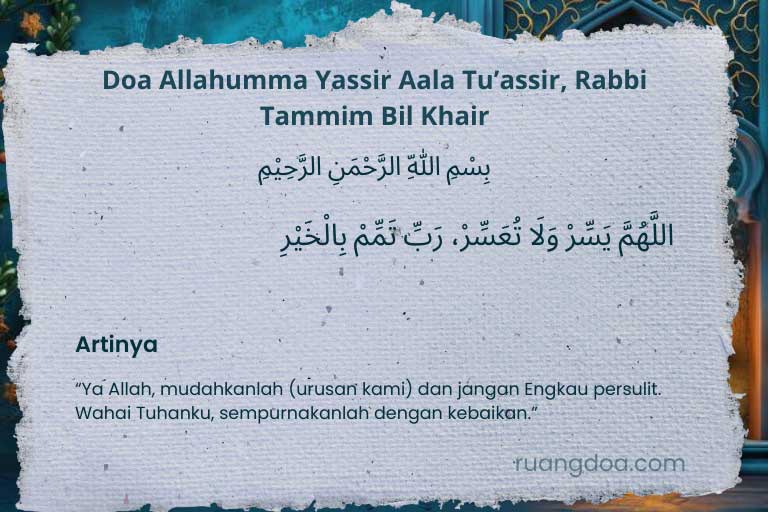 Doa Allahumma Yassir Aala Tu’assir, Rabbi
Tammim Bil Khair
بِسْمِ اللَّهِ الرَّحْمَنِ الرَّحِيْمِ
اللَّهُمَّ يَسِّرْ وَلَا تُعَسِّرْ، رَبِّ تَمِّمْ بِالْخَيْرِ
Artinya
“Ya Allah, mudahkanlah (urusan kami) dan jangan Engkau persulit.
Wahai Tuhanku, sempurnakanlah dengan kebaikan.”
ruangdoa.com